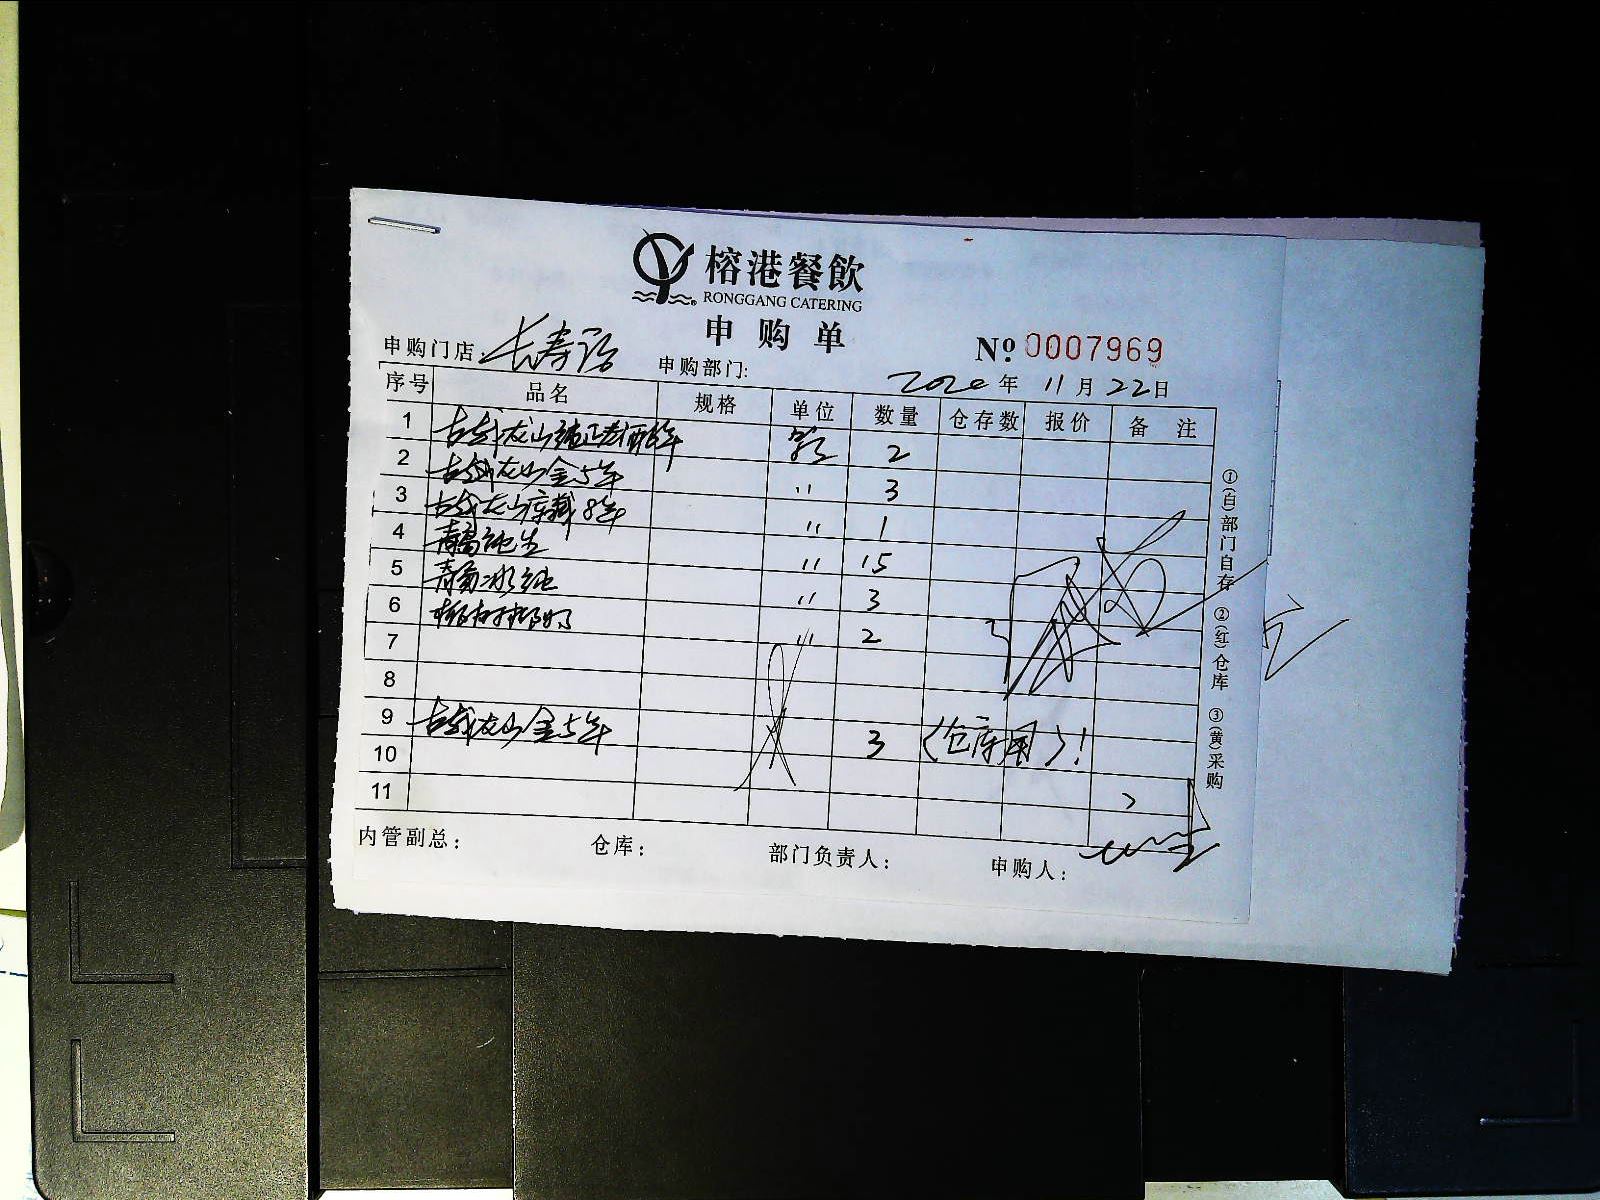 榕港餐飲
RONGGANG CATERING
申购单
№ 0007969
申购门店: 长寿路 申购部门:
2020 年 11 月 22 日
序号 品名 规格 单位 数量 仓存数 报价 备 注
1 古越龙山 年 箱 2
2 古越龙山金5年 " 3
3 古越龙山库藏8年 " 1
4 青岛纯生 " 15
5 青岛冰纯 " 3
6 " 2
7
8
9 古越龙山金5年 3 (仓库用)!
10
11
内管副总: 仓库: 部门负责人: 申购人:
①(白)部门自存 ②(红)仓库 ③(黄)采购